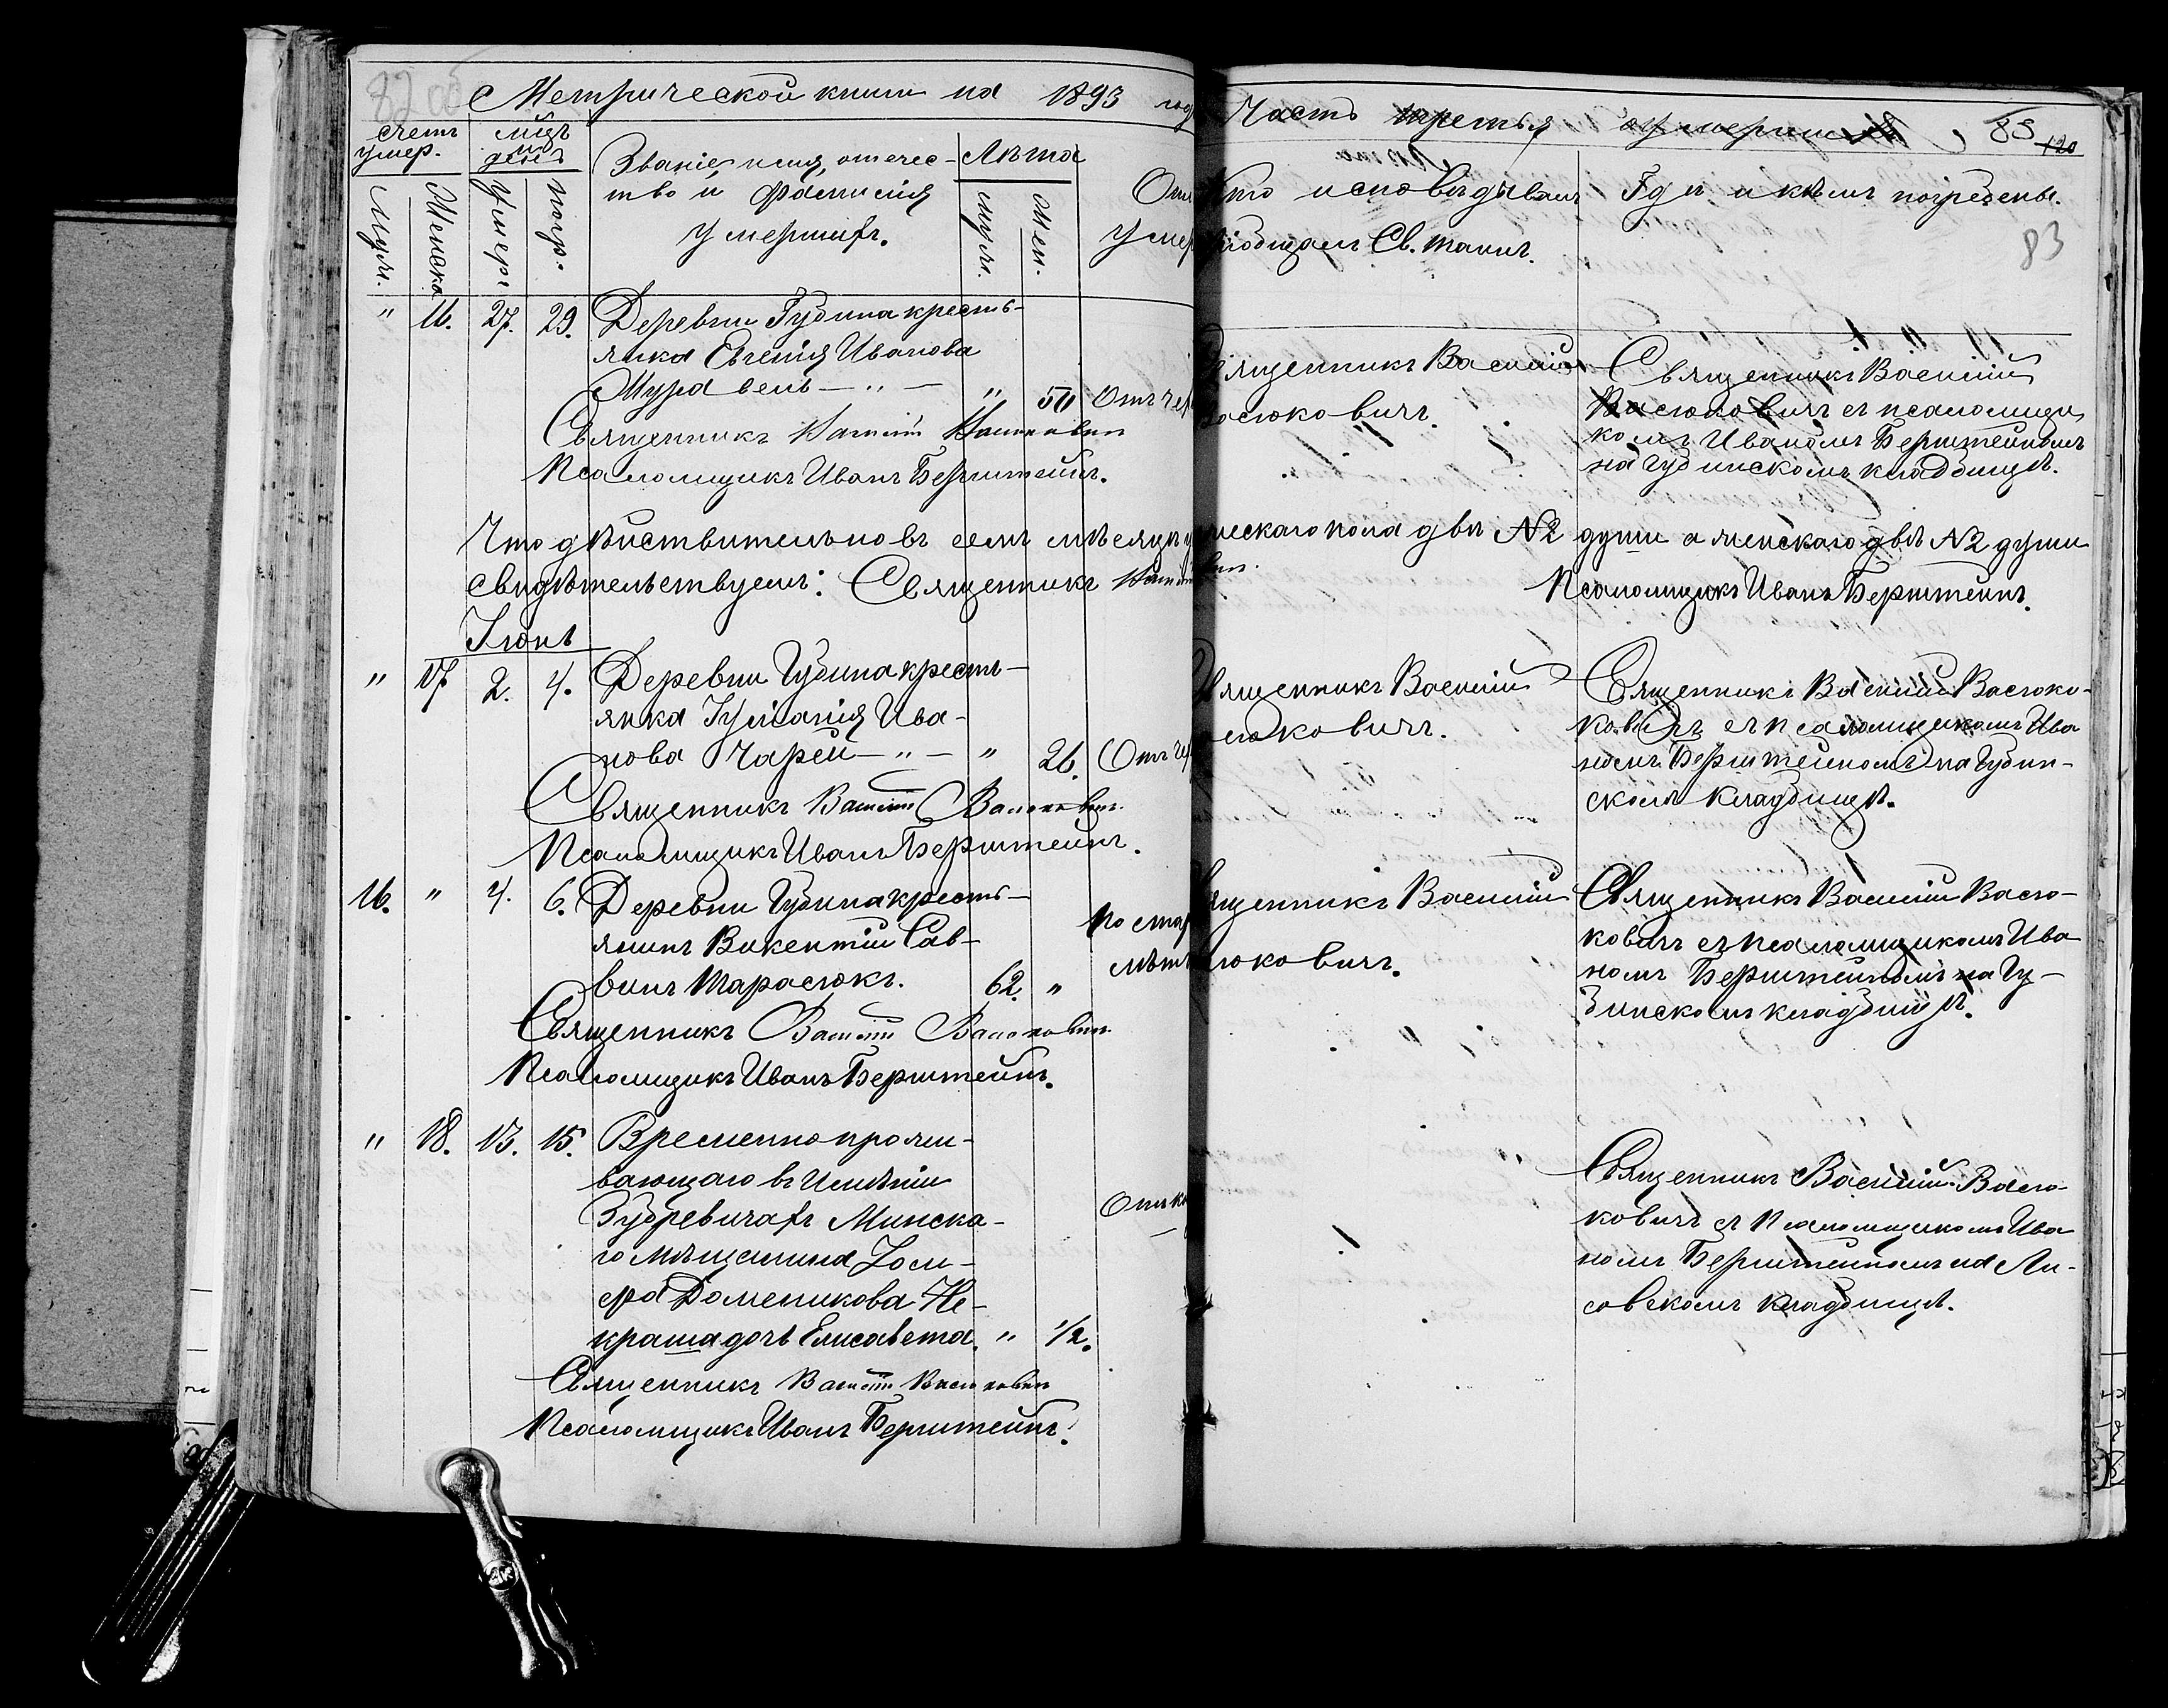 82 об
Метрической книги на 1893 год
Часть третья объ умершихъ 85 120
счетъ умер.
мѣсяцъ и день
Муж.
Женска
Умер.
погр.
Званіе, имя, отечес-
тво и фамилія
умершихъ.
Лѣта
муж.
жен.
Отъ
умер
Кто исповѣдывалъ
пріобщалъ Св. таинъ.
Гдѣ и кѣмъ погребены.
83
" 16. 27. 29. Деревни Губина кресть-
янка Евгенія Иванова
Журавель — " — " 50 Отъ чах
Священникъ Василій Васюковичъ
Псаломщикъ Иванъ Бернштейнъ.
Священникъ Василій
Васюковичъ.
Священникъ Василій
Васюковичъ съ псаломщи
комъ Иваномъ Бернштейномъ
на Губинскомъ кладбищѣ.
Что дѣйствительно въ семъ мѣсяцѣ ческаго пола двѣ №2 души а женскаго двѣ №2 души
свидѣтельствуемъ: Священникъ Васил
Псаломщикъ Иванъ Бернштейнъ.
Іюнь
" 17 2. 4. Деревни Губина кресть-
янка Іуліанія Ива-
нова Чарей — " — " 26. Отъ
Священникъ Василій Васюковичъ.
Псаломщикъ Иванъ Бернштейнъ.
Священникъ Василій
Васюковичъ.
Священникъ Василій Васюко-
ковичъ съ псаломщикомъ Ива
номъ Бернштейномъ на Губин-
скомъ кладбищѣ.
16. " 4. 6. Деревни Губина кресть-
янинъ Викентій Сав-
винъ Тарасюкъ. 62. "
По стар
лѣт
Священникъ Василій Васюковичъ
Псаломщикъ Иванъ Бернштейнъ.
Священникъ Василій
Васюковичъ.
Священникъ Василій Васю-
ковичъ съ псаломщикомъ Ива
номъ Бернштейномъ на Гу-
бинскомъ кладбищѣ.
" 18. 13. 15. Временно прожи-
вающаго въ имѣніи
Зубревичахъ Минска-
го мѣщанина Іоси-
фа Доменикова Не-
краша дочь Елисавета. " 1/2.
Отъ
Священникъ Василій Васюковичъ
Псаломщикъ Иванъ Бернштейнъ.
Священникъ Василій Васю-
ковичъ съ псаломщикомъ Ива
номъ Бернштейномъ на Ли-
совскомъ кладбищѣ.